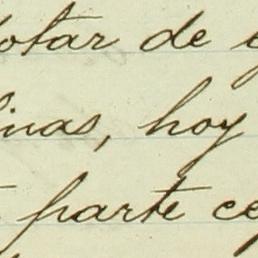 dotar de
linas, hoy
parte